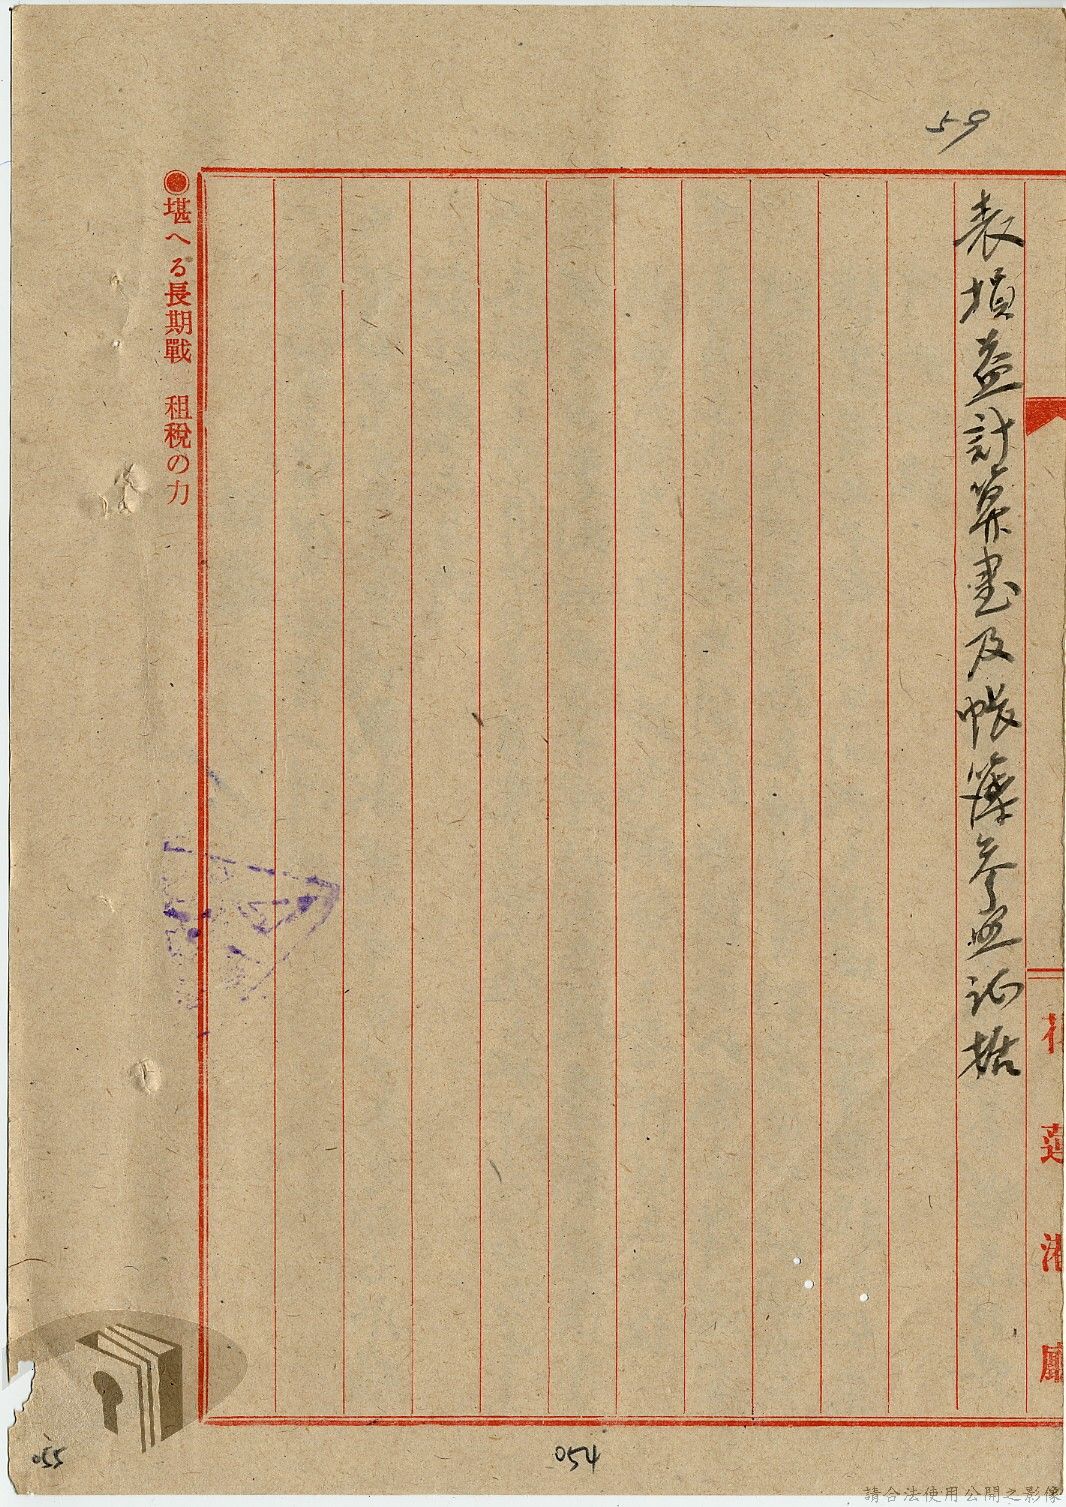 59
花蓮港廳
表損益計算書及帳簿參照証据
●堪へる長期戰 租税の力
054
055
請合法使用公開之影像